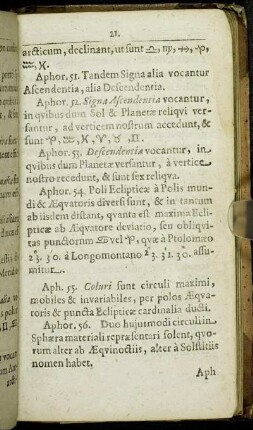 21.
arcticum, declinant, ut sunt ♎, ♍, ♐, ♑,
♒, ♓.
Aphor. 51. Tandem Signa alia vocantur
Ascendentia, alia Descendentia.
Aphor. 52. Signa Ascendentia vocantur,
in qvibus dum Sol & Planetæ reliqvi ver-
santur, ad verticem nostrum accedunt, &
sunt ♑, ♒, ♓, ♈, ♉, ♊.
Aphor. 53. Descendentia vocantur, in
qvibus dum Planetæ versantur, à vertice
nostro recedunt, & sunt sex reliqva.
Aphor. 54. Poli Eclipticæ à Polis mun-
di & Æqvatoris diversi sunt, & in tantum
ab iisdem distant, qvanta est maxima Ecli-
pticæ ab Æqvatore deviatio, seu obliqvi-
tas punctorum ♋ vel ♑, qvæ à Ptolomæo
23. 30. à Longomontano 23. 31. 30. assu-
mitur.
Aph. 55. Coluri sunt circuli maximi,
mobiles & invariabiles, per polos Æqva-
toris & puncta Eclipticæ cardinalia ducti.
Aphor. 56. Duo hujusmodi circuli in
Sphæra materiali repræsentari solent, qvo-
rum alter ab Æqvinoctiis, alter à Solstitiis
nomen habet.
Aph